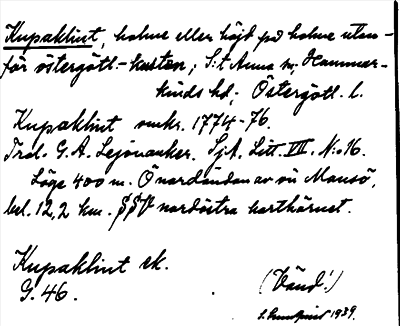 Kupaklint, holme eller höjd på holme utan-
för östergötl.-kusten; S:t Anna sn, Hammar-
kinds hd; Östergötl. l.
Kupaklint omkr. 1774-76.
Trol. G. A. Lejonanker. SjA. Litt. VII. N:o 16.
Läge 400 m. O nordändan av ön Mansö,
bel. 12,2 km. SSV nordöstra karthörnet.
Kupaklint sk.
G. 46.
(Vänd!)
1939.